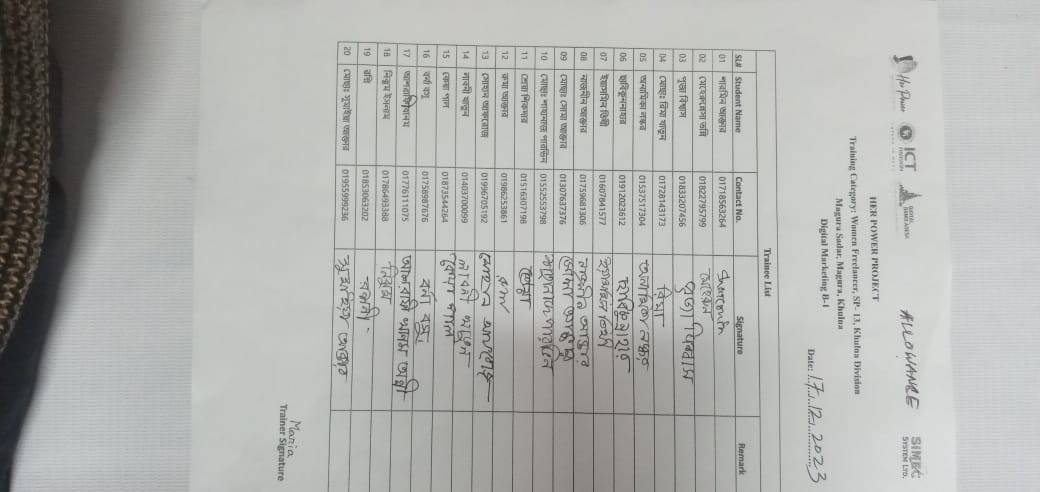 Her Power
ICT
DIVISION
ALLOWANCE
SIMEC
SYSTEM LTD.
HER POWER PROJECT
Training Category: Women Freelancer, SP- 13, Khulna Division
Magura Sadar, Magura, Khulna
Digital Marketing B-1
Date: 17.12.2023
Trainee List
SL# Student Name Contact No. Signature Remark
01 শারমিন আক্তার 01718563264 Sharmin
02 01822795799
03 পূজা বিশ্বাস 01833207456 পূজা বিশ্বাস
04 মোছাঃ রিমা খাতুন 01728143173 রিমা
05 অনামিকা লস্কর 01537517304 অনামিকা লস্কর
06 01912023612
07 ইয়াসমিন তিথী 01607841577
08 নাজনীন আক্তার 01759681306 নাজনীন আক্তার
09 মোছাঃ সোমা আক্তার 01307637376 সোমা আক্তার
10 মোছাঃ শাহানাজ পারভিন 01552553798 শাহানাজ পারভিন
11 শ্রেয়া শিকদার 01516307198 শ্রেয়া
12 রুমা আক্তার 01986253861 রুমা
13 সোহান আফরোজ 01996705192
14 লাবনী খাতুন 01403700099 লাবনী খাতুন
15 কেয়া পাল 01873544264 কেয়া পাল
16 বর্ণা বসু 01758987676 বর্ণা বসু
17 01776111075
18 নিঝুম ইসলাম 01786493388 নিঝুম
19 01853063202
20 মোছাঃ সুমাইয়া আক্তার 01955999236 সুমাইয়া আক্তার
Maria
Trainer Signature